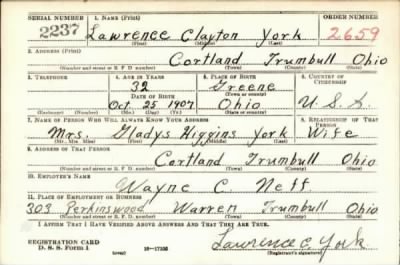 SERIAL NUMBER 1. NAME (Print) ORDER NUMBER
2237 Lawrence Clayton York 2659
(First) (Middle) (Last)
2. ADDRESS (Print)
Cortland Trumbull Ohio
(Number and street or R. F. D. number) (Town) (County) (State)
3. TELEPHONE 4. AGE IN YEARS 5. PLACE OF BIRTH 6. COUNTRY OF CITIZENSHIP
32 Greene
DATE OF BIRTH (Town or county)
Oct. 25 1907 Ohio U.S.A.
(Exchange) (Number) (Mo.) (Day) (Yr.) (State or country)
7. NAME OF PERSON WHO WILL ALWAYS KNOW YOUR ADDRESS 8. RELATIONSHIP OF THAT PERSON
Mrs. Gladys Higgins York Wife
(Mr., Mrs., Miss) (First) (Middle) (Last)
9. ADDRESS OF THAT PERSON
Cortland Trumbull Ohio
(Number and street or R. F. D. number) (Town) (County) (State)
10. EMPLOYER'S NAME
Wayne C. Neff
11. PLACE OF EMPLOYMENT OR BUSINESS
303 Perkinswood Warren Trumbull Ohio
(Number and street or R. F. D. number) (Town) (County) (State)
I AFFIRM THAT I HAVE VERIFIED ABOVE ANSWERS AND THAT THEY ARE TRUE.
REGISTRATION CARD
D. S. S. Form 1 (over) 16—17105 Lawrence C. York
(Registrant's signature)